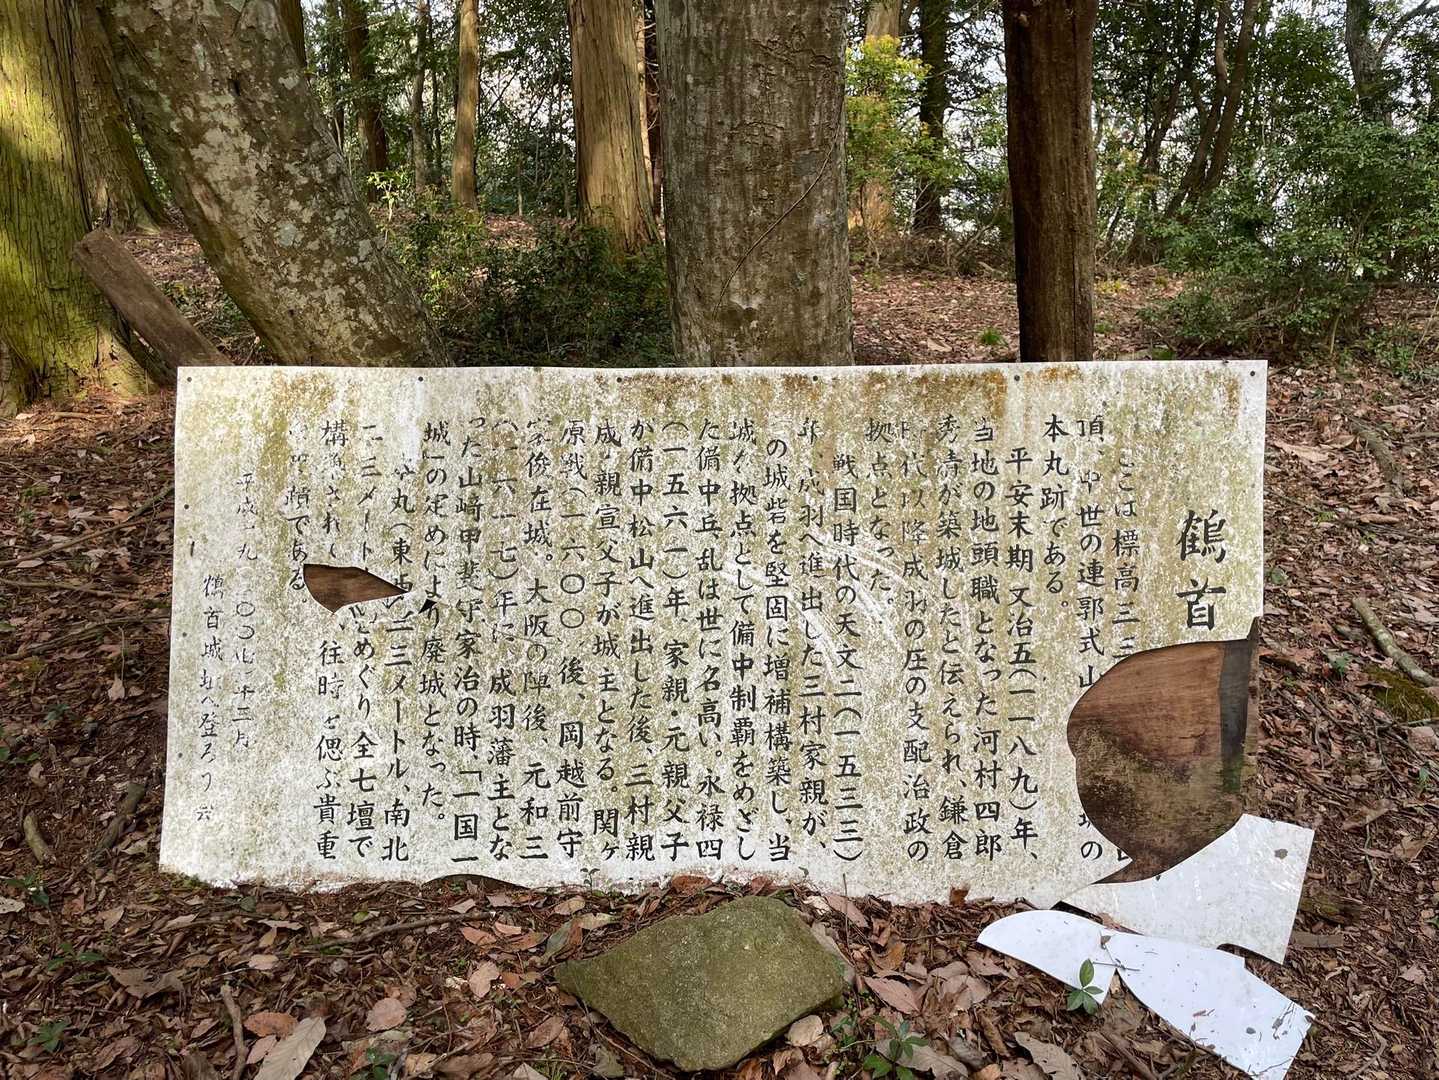 鶴首
こは標高三三
頂、中世の連郭式山城の
本丸跡である。
平安末期文治五(一一八九)年、
当地の地頭職となった河村四郎
秀清が築城したと伝えられ、鎌倉
時代以降成羽の庄の支配治政の
拠点となった。
戦国時代の天文二(一五三三)
年、成羽へ進出した三村家親が、
の城砦を堅固に増補構築し、当
城を拠点として備中制覇をめざし
た備中兵乱は世に名高い。永禄四
(一五六一)年、家親・元親父子
が備中松山へ進出した後、三村親
成・親宣父子が城主となる。関ヶ
原戦(一六〇〇)後、岡越前守
家俊在城。大阪の陣後、元和三
(一六一七)年に、成羽藩主とな
った山﨑甲斐守家治の時、「一国一
城」の定めにより廃城となった。
丸(東西二三メートル、南北
二三メート をめぐり全七壇で
構 され 、往時を偲ぶ貴重
である。
平成十九 二〇〇七年三月
鶴首城址へ登ろう会